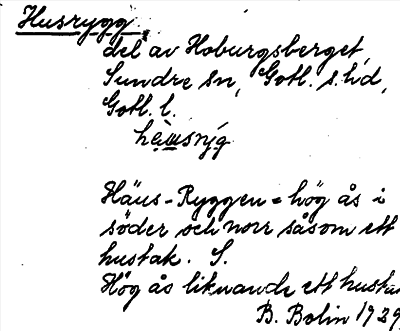 Husrygg,
del av Hoburgsberget,
Sundre sn, Gotl. s. hd,
Gotl. l.
Häus-Ryggen = hög ås i
söder och norr såsom ett
hustak. S.
Hög ås liknande ett
B. Bolin 1929